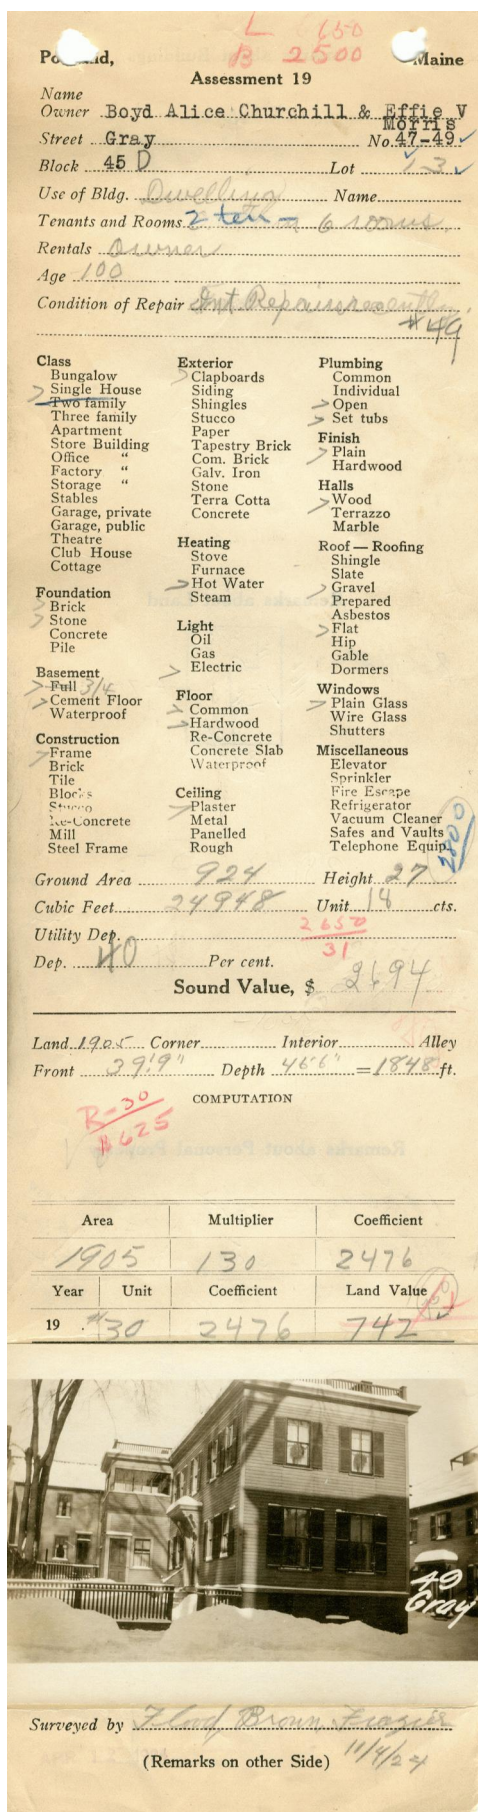 L 650
B 2500
Portland, Maine
Assessment 19
Name
Owner Boyd Alice Churchill & Effie V
Morris
Street Gray No. 47-49
Block 45 D Lot 1-3
Use of Bldg. Dwelling Name
Tenants and Rooms 2 ten - 6 rooms
Rentals Owner
Age 100
Condition of Repair Int Repairs recently
#49
Class
Bungalow
Single House
Two family
Three family
Apartment
Store Building
Office "
Factory "
Storage "
Stables
Garage, private
Garage, public
Theatre
Club House
Cottage
Foundation
Brick
Stone
Concrete
Pile
Basement
Full 3/4
Cement Floor
Waterproof
Construction
Frame
Brick
Tile
Blocks
Stucco
Re-Concrete
Mill
Steel Frame
Exterior
Clapboards
Siding
Shingles
Stucco
Paper
Tapestry Brick
Com. Brick
Galv. Iron
Stone
Terra Cotta
Concrete
Heating
Stove
Furnace
Hot Water
Steam
Light
Oil
Gas
Electric
Floor
Common
Hardwood
Re-Concrete
Concrete Slab
Waterproof
Ceiling
Plaster
Metal
Panelled
Rough
Plumbing
Common
Individual
Open
Set tubs
Finish
Plain
Hardwood
Halls
Wood
Terrazzo
Marble
Roof — Roofing
Shingle
Slate
Gravel
Prepared
Asbestos
Flat
Hip
Gable
Dormers
Windows
Plain Glass
Wire Glass
Shutters
Miscellaneous
Elevator
Sprinkler
Fire Escape
Refrigerator
Vacuum Cleaner
Safes and Vaults
Telephone Equip.
2800
Ground Area 924 Height 27
Cubic Feet 24948 Unit 18 cts.
Utility Dep. 2650
31
Dep. 40 Per cent.
Sound Value, $ 2694
Land 1905 Corner Interior Alley
Front 39'9" Depth 46'6" = 1848 ft.
COMPUTATION
R-30
$625
Area Multiplier Coefficient
1905 130 2476
Year Unit Coefficient Land Value
19 #30 2476 742
49
Gray
Surveyed by Floyd Brown Frazier
(Remarks on other Side) 11/4/24